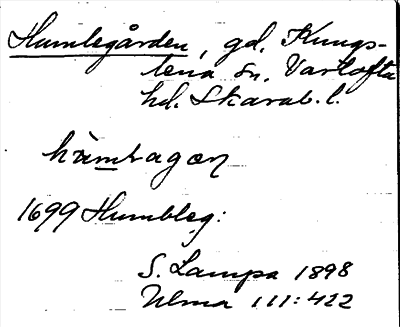 Humlegården, gd. Kungs-
lena sn. Vartofta
hd. Skarab. l.
hùmbagaɷn
1699 Humbleg:
S. Lampa 1898
Ulma 111:422